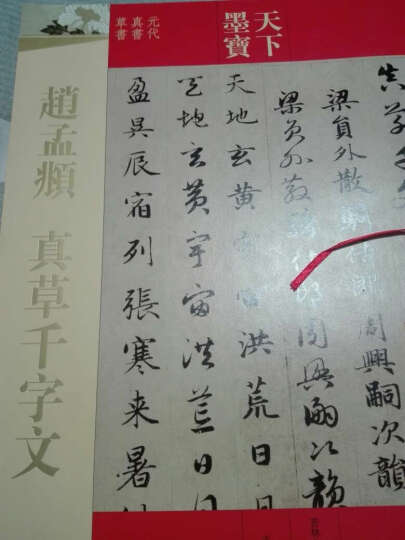 天下
墨寶
元代
真書
草書
趙孟頫 真草千字文
梁員外散騎侍郎周興嗣次韻
梁員外散騎侍郎周興嗣次韻
天地玄黃宇宙洪荒日
天地玄黃宇宙洪荒日
盈昃辰宿列張寒来暑